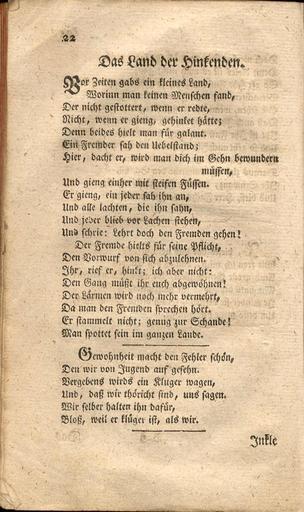 22
Das Land der Hinkenden.
Vor Zeiten gabs ein kleines Land,
Worinn man keinen Menschen fand,
Der nicht gestottert, wenn er redte,
Nicht, wenn er gieng, gehinket hätte;
Denn beides hielt man für galant.
Ein Fremder sah den Uebelstand;
Hier, dacht er, wird man dich im Gehn bewundern
müssen,
Und gieng einher mit steifen Füssen.
Er gieng, ein jeder sah ihn an,
Und alle lachten, die ihn sahn,
Und jeder blieb vor Lachen stehen,
Und schrie: Lehrt doch den Fremden gehen!
Der Fremde hielts für seine Pflicht,
Den Vorwurf von sich abzulehnen.
Ihr, rief er, hinkt; ich aber nicht:
Den Gang müßt ihr euch abgewöhnen!
Der Lärmen wird noch mehr vermehrt,
Da man den Fremden sprechen hört.
Er stammelt nicht; genug zur Schande!
Man spottet sein im ganzen Lande.
Gewohnheit macht den Fehler schön,
Den wir von Jugend auf gesehn.
Vergebens wirds ein Kluger wagen,
Und, daß wir thöricht sind, uns sagen.
Wir selber halten ihn dafür,
Bloß, weil er klüger ist, als wir.
Inkle